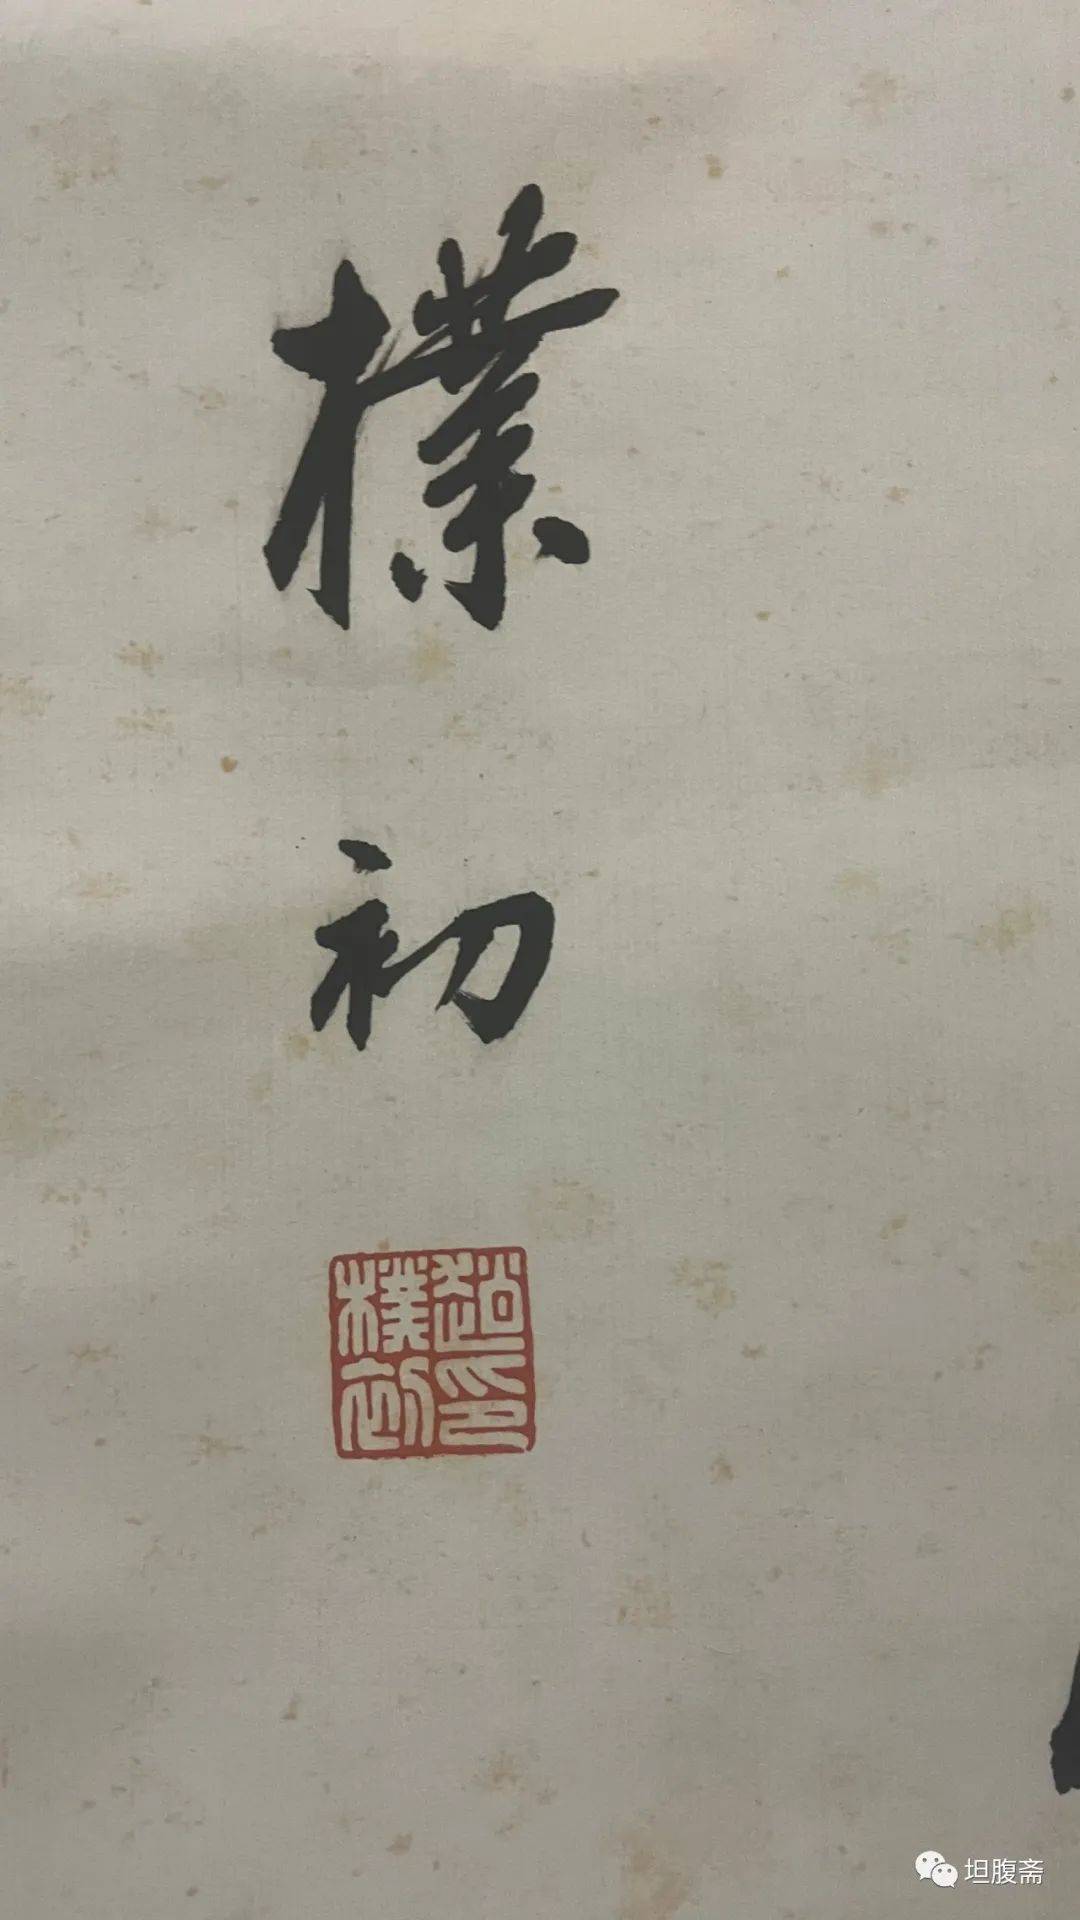 樸
初
趙印
樸初
坦腹斋